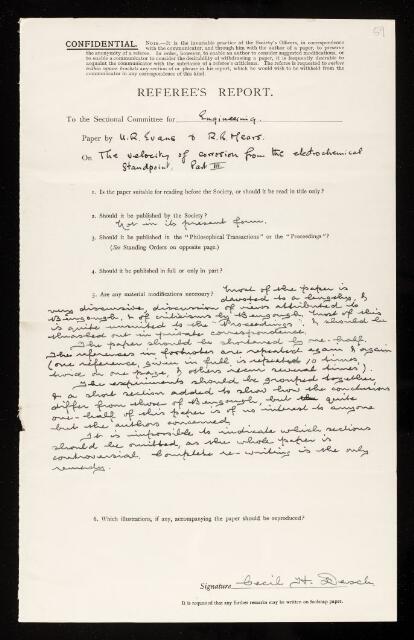 59
CONFIDENTIAL. NOTE.—It is the invariable practice of the Society's Officers, in correspondence
with the communicator, and through him with the author of a paper, to preserve
the anonymity of a referee. In order, however, to enable an author to consider suggested modifications, or
to enable a communicator to consider the desirability of withdrawing a paper, it is frequently desirable to
acquaint the communicator with the substance of a referee's criticisms. The referee is requested to enclose
within square brackets any section of or phrase in his report, which he would wish to be withheld from the
communicator in any correspondence of this kind.
REFEREE'S REPORT.
To the Sectional Committee for Engineering.
Paper by U. R. Evans & R. B. Mears.
On The velocity of corrosion from the electrochemical
Standpoint. Part III
1. Is the paper suitable for reading before the Society, or should it be read in title only?
2. Should it be published by the Society?
Not in its present form.
3. Should it be published in the "Philosophical Transactions" or the "Proceedings"?
(See Standing Orders on opposite page.)
4. Should it be published in full or only in part?
5. Are any material modifications necessary? Most of the paper is
devoted to a lengthy, &
very discursive, discussion of views attributed to
Bengough, & of criticisms by Bengough. Most of this
is quite unsuited to the Proceedings, & should be
thrashed out in private correspondence.
The paper should be shortened by one-half.
The references in footnotes are repeated again & again
(one reference, given in full is repeated 10 times,
twice on one page, & others recur several times).
The experiments should be grouped together,
& a short section added to show how the conclusions
differ from those of Bengough, but quite
one-half of this paper is of no interest to anyone
but the authors concerned.
It is impossible to indicate which sections
should be omitted, as the whole paper is
controversial. Complete re-writing is the only
remedy.
6. Which illustrations, if any, accompanying the paper should be reproduced?
Signature Cecil H. Desch
It is requested that any further remarks may be written on foolscap paper.